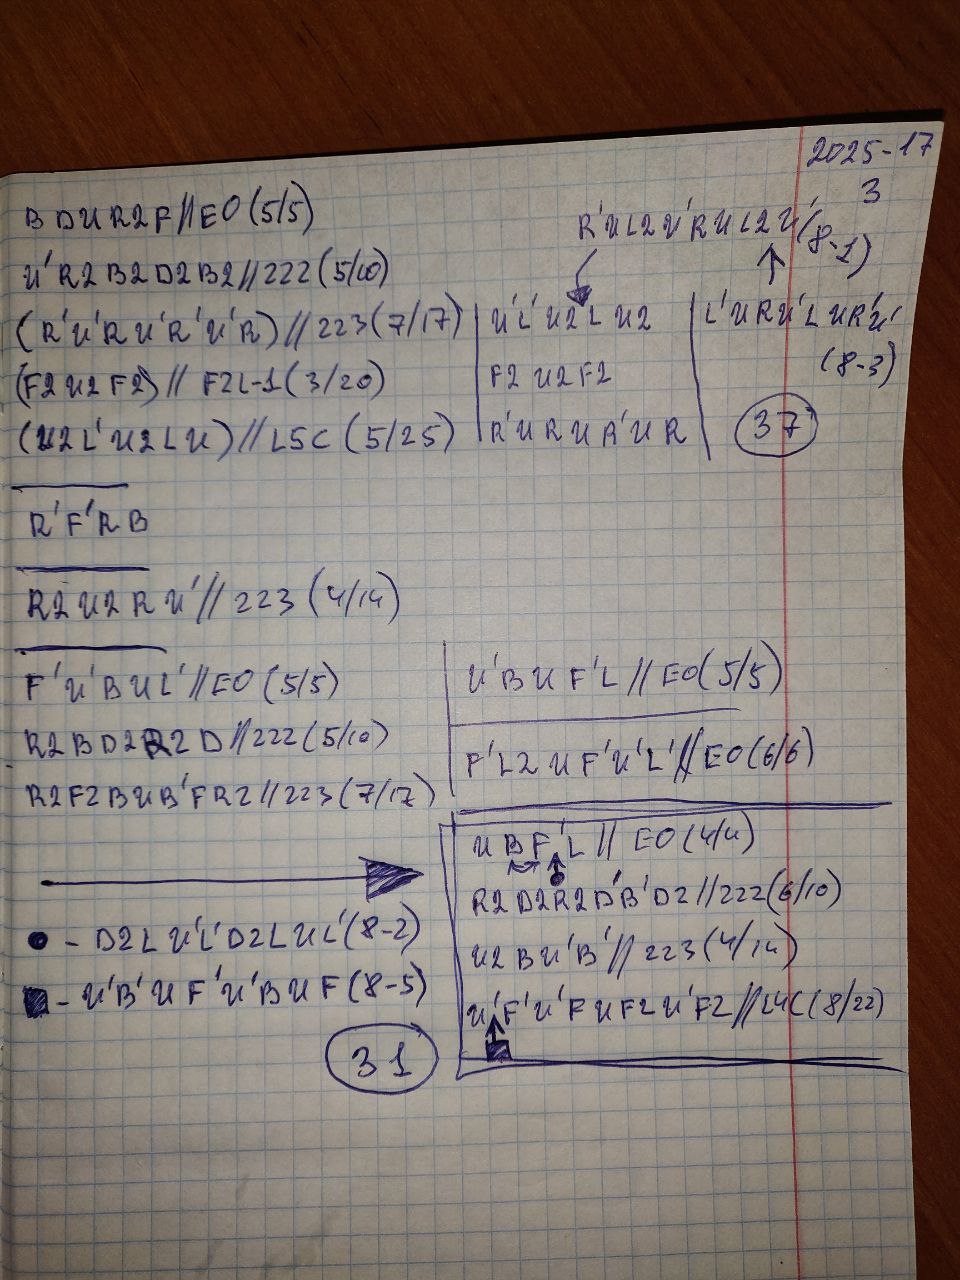 2025-17
3
B D U R2 F // EO (5/5)
U' R2 B2 D2 B2 // 222 (5/10)
(R' U' R U' R' U' R) // 223 (7/17)
(F2 U2 F2) // F2L-1 (3/20)
(U2 L' U2 L U) // L5C (5/25)
R' U L2 U' R U L2 U' (8-1)
U' L' U2 L U2
F2 U2 F2
R' U R U R' U R
L' U R U' L U R' U'
(8-3)
37
R' F' R B
R2 U2 R U' // 223 (4/14)
F' U' B U L' // EO (5/5)
R2 B D2 R2 D // 222 (5/10)
R2 F2 B U B' F R2 // 223 (7/17)
U' B U F' L // EO (5/5)
F' L2 U F' U' L' // EO (6/6)
U B F' L // EO (4/4)
R2 D2 R2 D' B' D2 // 222 (6/10)
U2 B U' B' // 223 (4/14)
U' F' U' F U F2 U' F2 // L4C (8/22)
- D2 L U' L' D2 L U L' (8-2)
- U' B' U F' U' B U F (8-5)
31